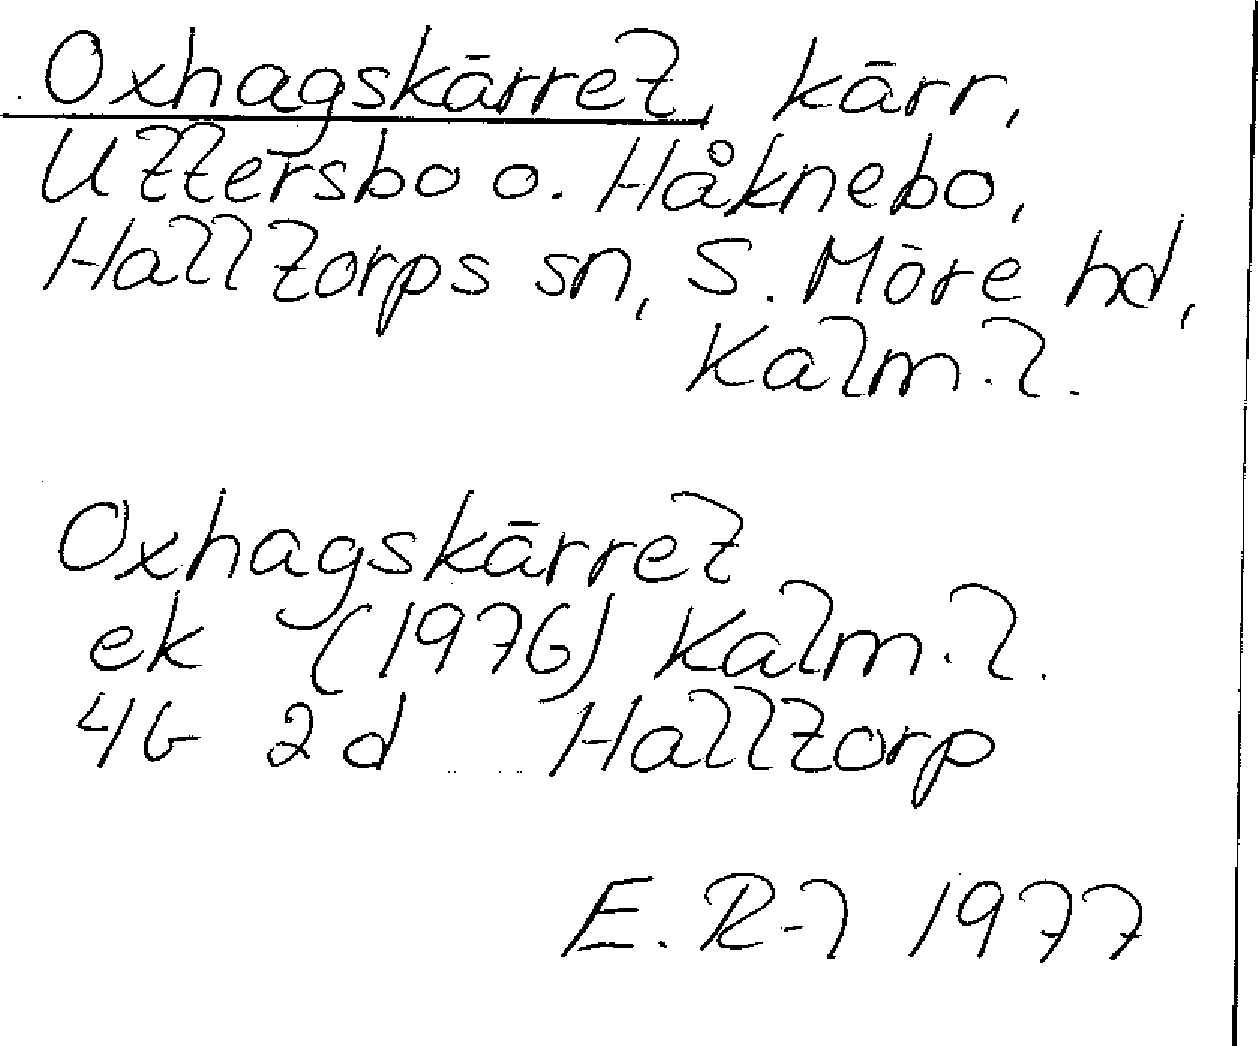 Oxhagskärret, kärr,
Uttersbo o. Håknebo,
Halltorps sn, S. Möre hd,
Kalm. l.
Oxhagskärret
ek (1976) Kalm. l.
4G 2d Halltorp
E. R-l 1977